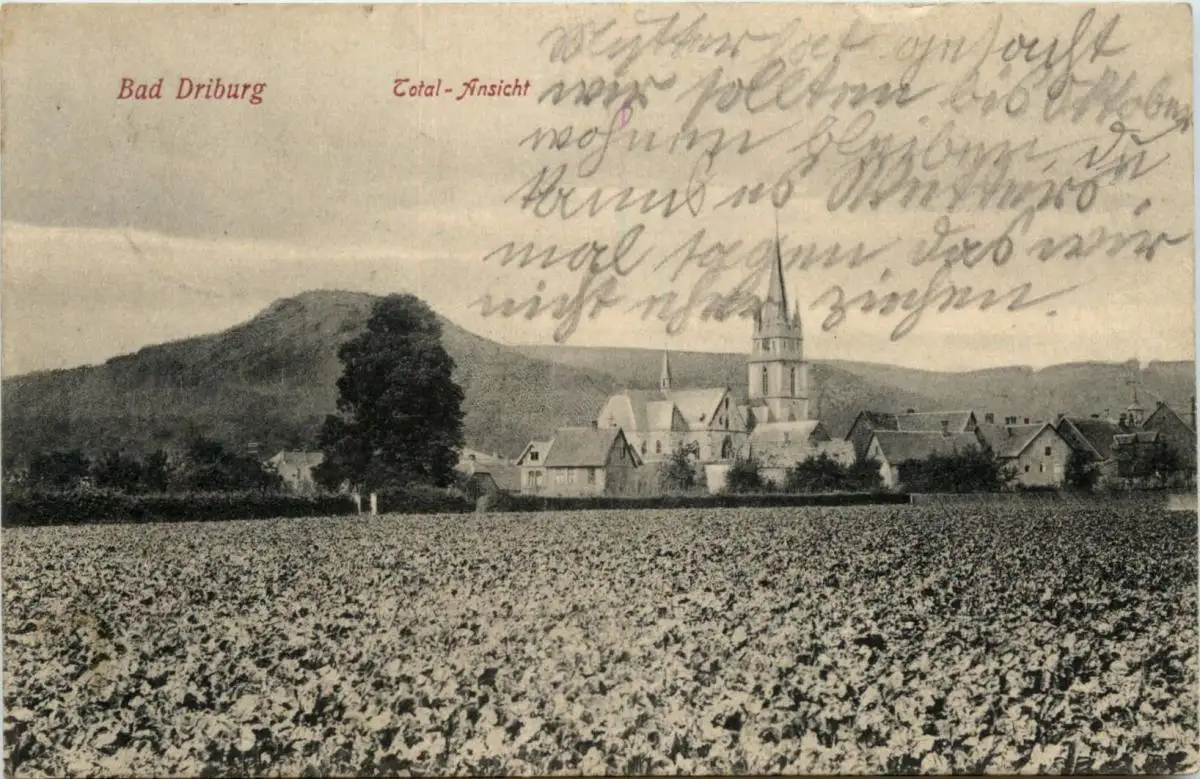 Bad Driburg
Total-Ansicht
Mutter hat gesacht
wir sollten bis Oktober
wohnen bleiben, du
kanns es Mutters
mal sagen, das wir
nicht eher ziehen